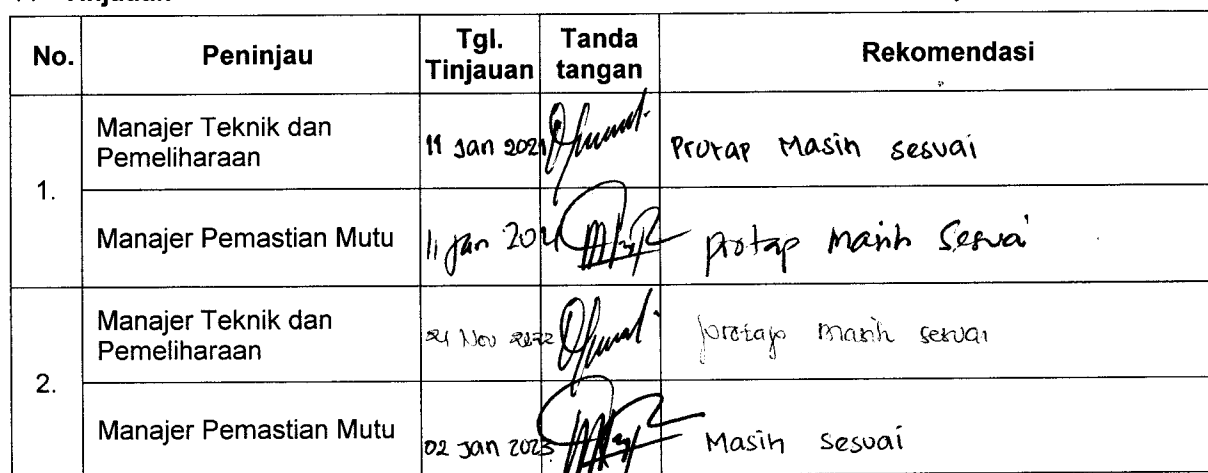 Tinjauan
No. Peninjau Tgl. Tinjauan Tanda tangan Rekomendasi
1.
Manajer Teknik dan Pemeliharaan 11 Jan 2021 Protap Masih sesuai
Manajer Pemastian Mutu 11 Jan 2021 protap masih sesuai
2.
Manajer Teknik dan Pemeliharaan 24 Nov 2022 protap masih sesuai
Manajer Pemastian Mutu 02 Jan 2023 Masih sesuai